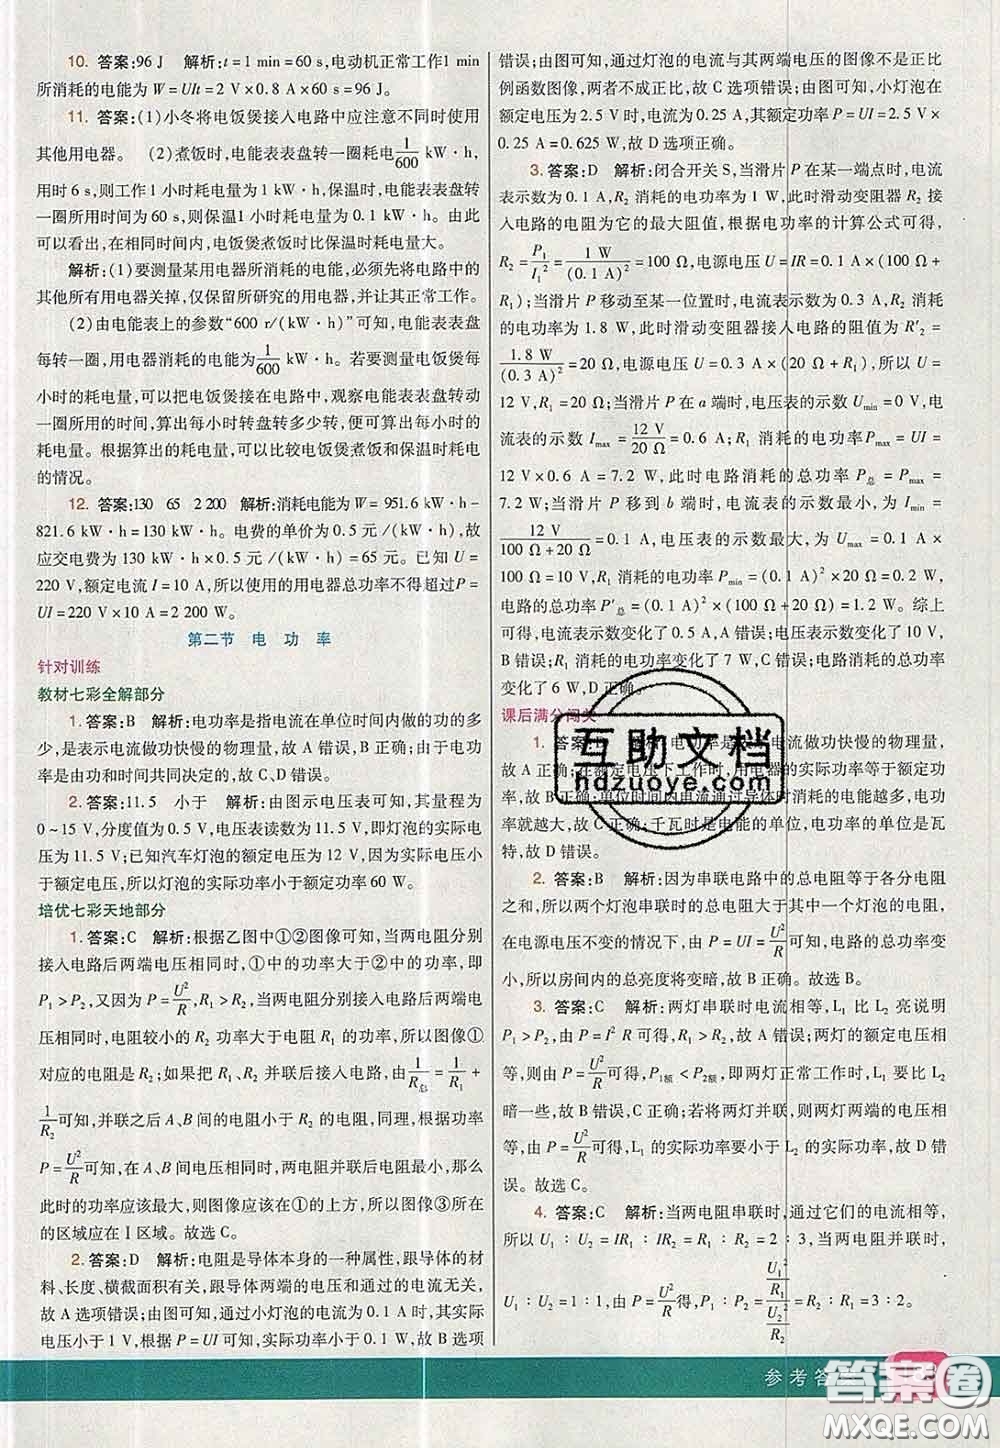 10. 答案:96 J 解析:t=1 min=60 s,电动机正常工作1 min
所消耗的电能为 W=UIt=2 V×0.8 A×60 s=96 J。
11. 答案:(1)小冬将电饭煲接入电路中应注意不同时使用
其他用电器。 (2)煮饭时,电能表表盘转一圈耗电1/600 kW·h,用
时6 s,则工作1小时耗电量为1 kW·h;保温时,电能表表盘转
一圈所用时间为60 s,则保温1小时耗电量为0.1 kW·h。由此
可以看出,在相同时间内,电饭煲煮饭时比保温时耗电量大。
解析:(1)要测量某用电器所消耗的电能,必须先将电路中的
其他所有用电器关掉,仅保留所研究的用电器,并让其正常工作。
(2)由电能表上的参数“600 r/(kW·h)”可知,电能表表盘
每转一圈,用电器消耗的电能为1/600 kW·h。若要测量电饭煲每
小时的耗电量,可以将电饭煲接在电路中,观察电能表表盘转动
一圈所用的时间,算出每小时转盘转多少转,便可算出每小时的
耗电量。根据算出的耗电量,可以比较电饭煲煮饭和保温时耗电
的情况。
12. 答案:130 65 2 200 解析:消耗电能为 W=951.6 kW·h-
821.6 kW·h=130 kW·h。电费的单价为0.5元/(kW·h),故
应交电费为130 kW·h×0.5元/(kW·h)=65元。已知 U=
220 V,额定电流 I=10 A,所以使用的用电器总功率不得超过P=
UI=220 V×10 A=2 200 W。
第二节 电 功 率
针对训练
教材七彩全解部分
1. 答案:B 解析:电功率是指电流在单位时间内做的功的多
少,是表示电流做功快慢的物理量,故 A 错误,B 正确;由于电功
率是由功和时间共同决定的,故 C、D 错误。
2. 答案:11.5 小于 解析:由图示电压表可知,其量程为
0~15 V,分度值为0.5 V,电压表读数为11.5 V,即灯泡的实际电
压为11.5 V;已知汽车灯泡的额定电压为12 V,因为实际电压小
于额定电压,所以灯泡的实际功率小于额定功率60 W。
培优七彩天地部分
1. 答案:C 解析:根据乙图中①②图像可知,当两电阻分别
接入电路后两端电压相同时,①中的功率大于②中的功率,即
P₁>P₂,又因为 P=U²/R,R₁>R₂,当两电阻分别接入电路后两端电
压相同时,电阻较小的 R₂ 功率大于电阻 R₁ 的功率,所以图像①
对应的电阻是 R₂;如果把 R₁、R₂ 并联后接入电路,由 1/R总=1/R₁+
1/R₂可知,并联之后 A、B 间的电阻小于 R₂ 的电阻,同理,根据
P=U²/R可知,在 A、B 间电压相同时,因两电阻并联后电阻最小,那么
此时的功率应该最大,则图像应该在①的上方,所以图像③所在
的区域应在Ⅰ区域。故选 C。
2. 答案:D 解析:电阻是导体本身的一种属性,跟导体的材
料、长度、横截面积有关,跟导体两端的电压和通过的电流无关,
故 A 选项错误;由图可知,通过小灯泡的电流为0.1 A时,其实际
电压小于1 V,根据 P=UI 可知,实际功率小于0.1 W,故 B 选项
错误;由图可知,通过灯泡的电流与其两端电压的图像不是正比
例函数图像,两者不成正比,故 C 选项错误;由图可知,小灯泡在
额定电压为2.5 V时,电流为0.25 A,其额定功率 P=UI=2.5 V×
0.25 A=0.625 W,故 D 选项正确。
3. 答案:D 解析:闭合开关 S,当滑片 P 在某一端点时,电流
表示数为0.1 A,R₂ 消耗的电功率为1 W,此时滑动变阻器 R₂ 接
入电路的电阻为它的最大阻值,根据电功率的计算公式可得,
R₂=P₁/I₁²=1 W/(0.1 A)²=100 Ω,电源电压 U=IR=0.1 A×(100 Ω+
R₁);当滑片 P 移动至某一位置时,电流表示数为0.3 A,R₂ 消耗
的电功率为1.8 W,此时滑动变阻器接入电路的阻值为 R′₂=
1.8 W/(0.3 A)²=20 Ω,电源电压 U=0.3 A×(20 Ω+R₁),所以 U=
12 V,R₁=20 Ω;当滑片 P 在 a 端时,电压表的示数 Umin=0 V,电
流表的示数 Imax=12 V/20 Ω=0.6 A;R₁ 消耗的功率 Pmax=UI=
12 V×0.6 A=7.2 W,此时电路消耗的总功率 P总=Pmax=
7.2 W;当滑片 P 移到 b 端时,电流表的示数最小,为 Imin=
12 V/(100 Ω+20 Ω)=0.1 A,电压表的示数最大,为 Umax=0.1 A×
100 Ω=10 V,R₁ 消耗的功率 Pmin=(0.1 A)²×20 Ω=0.2 W,
电路的总功率 P′总=(0.1 A)²×(100 Ω+20 Ω)=1.2 W。综上
可得,电流表示数变化了0.5 A,A 错误;电压表示数变化了10 V,
B 错误;R₁ 消耗的功率变化了7 W,C 错误;电路消耗的总功率变
化了6 W,D 正确。
课后满分闯关
1. 答案:D 解析:电功率是表示电流做功快慢的物理量,
故 A 正确;在额定电压下工作时,用电器的实际功率等于额定功
率,故 B 正确;单位时间内电流通过导体时消耗的电能越多,电功
率就越大,故 C 正确;千瓦时是电能的单位,电功率的单位是瓦
特,故 D 错误。
2. 答案:B 解析:因为串联电路中的总电阻等于各分电阻
之和,所以两个灯泡串联时的总电阻大于其中一个灯泡的电阻,
在电源电压不变的情况下,由 P=UI=U²/R可知,电路的总功率变
小,所以房间内的总亮度将变暗,故 B 正确。故选 B。
3. 答案:C 解析:两灯串联时电流相等,L₁ 比 L₂ 亮说明
P₁>P₂,由 P=I²R 可得,R₁>R₂,故 A 错误;两灯的额定电压相
等,由 P=U²/R可得,P₁额<P₂额,即两灯正常工作时,L₁ 要比 L₂
暗一些,故 C 正确;若将两灯并联,则两灯两端的电压相
等,由 P=U²/R可得,L₁ 的实际功率要小于 L₂ 的实际功率,故 D 错
误。故选 C。
4. 答案:C 解析:当两电阻串联时,通过它们的电流相等,
所以 U₁∶U₂=IR₁∶IR₂=R₁∶R₂=2∶3,当两电阻并联时,
U₁∶U₂=1∶1,由 P=U²/R得,P₁/P₂=(U₁²/R₁)/(U₂²/R₂)=R₂∶R₁=3∶2。
互助文档
hdzuoye.com
参考答
答案圈
MXQE.COM